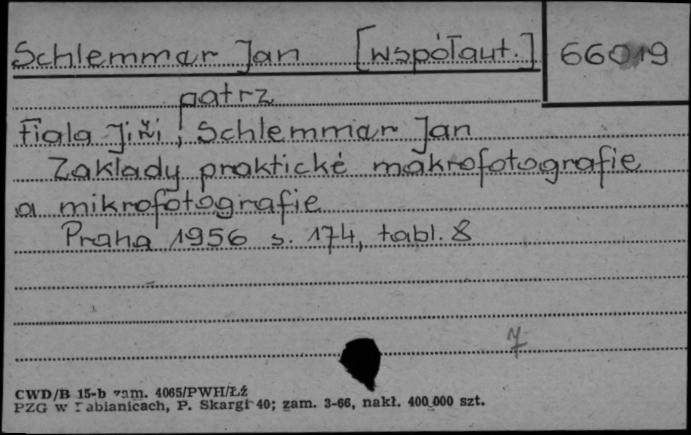 Schlemmar Jan [współaut.] 66019
patrz
Fiala Jiži, Schlemmar Jan
Zaklady praktické makrofotografie
a mikrofotografie
Praha 1956 s. 174, tabl. 8
7
CWD/B 15-b zam. 4065/PWH/Łź
PZG w Pabianicach, P. Skargi 40; zam. 3-66, nakł. 400 000 szt.